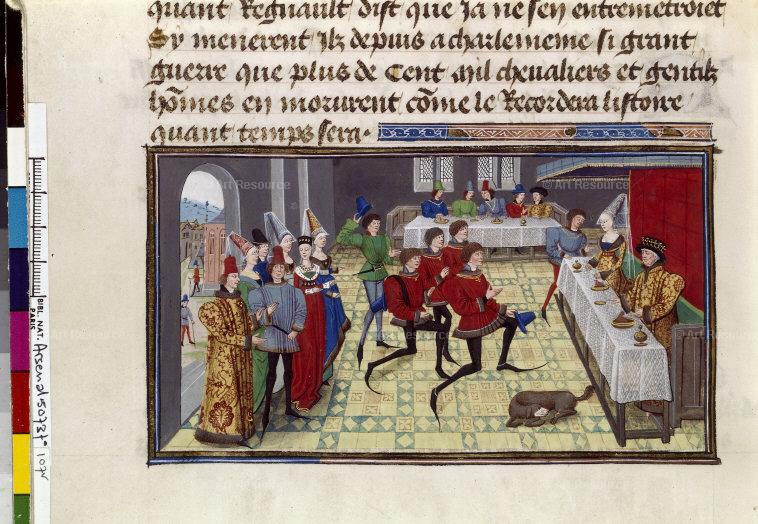 quant Regnault dist que Ja ne sen entremetroiet
Sy menerent Ilz depuis a charlemeine si grant
guerre que plus de Cent mil chevaliers et gentilz
hōmes en morurent cōme le Recordera listoire
quant temps sera.
Art Resource
Art Resource
BIBL. NAT.
PARIS
Arsenal 5073 rés